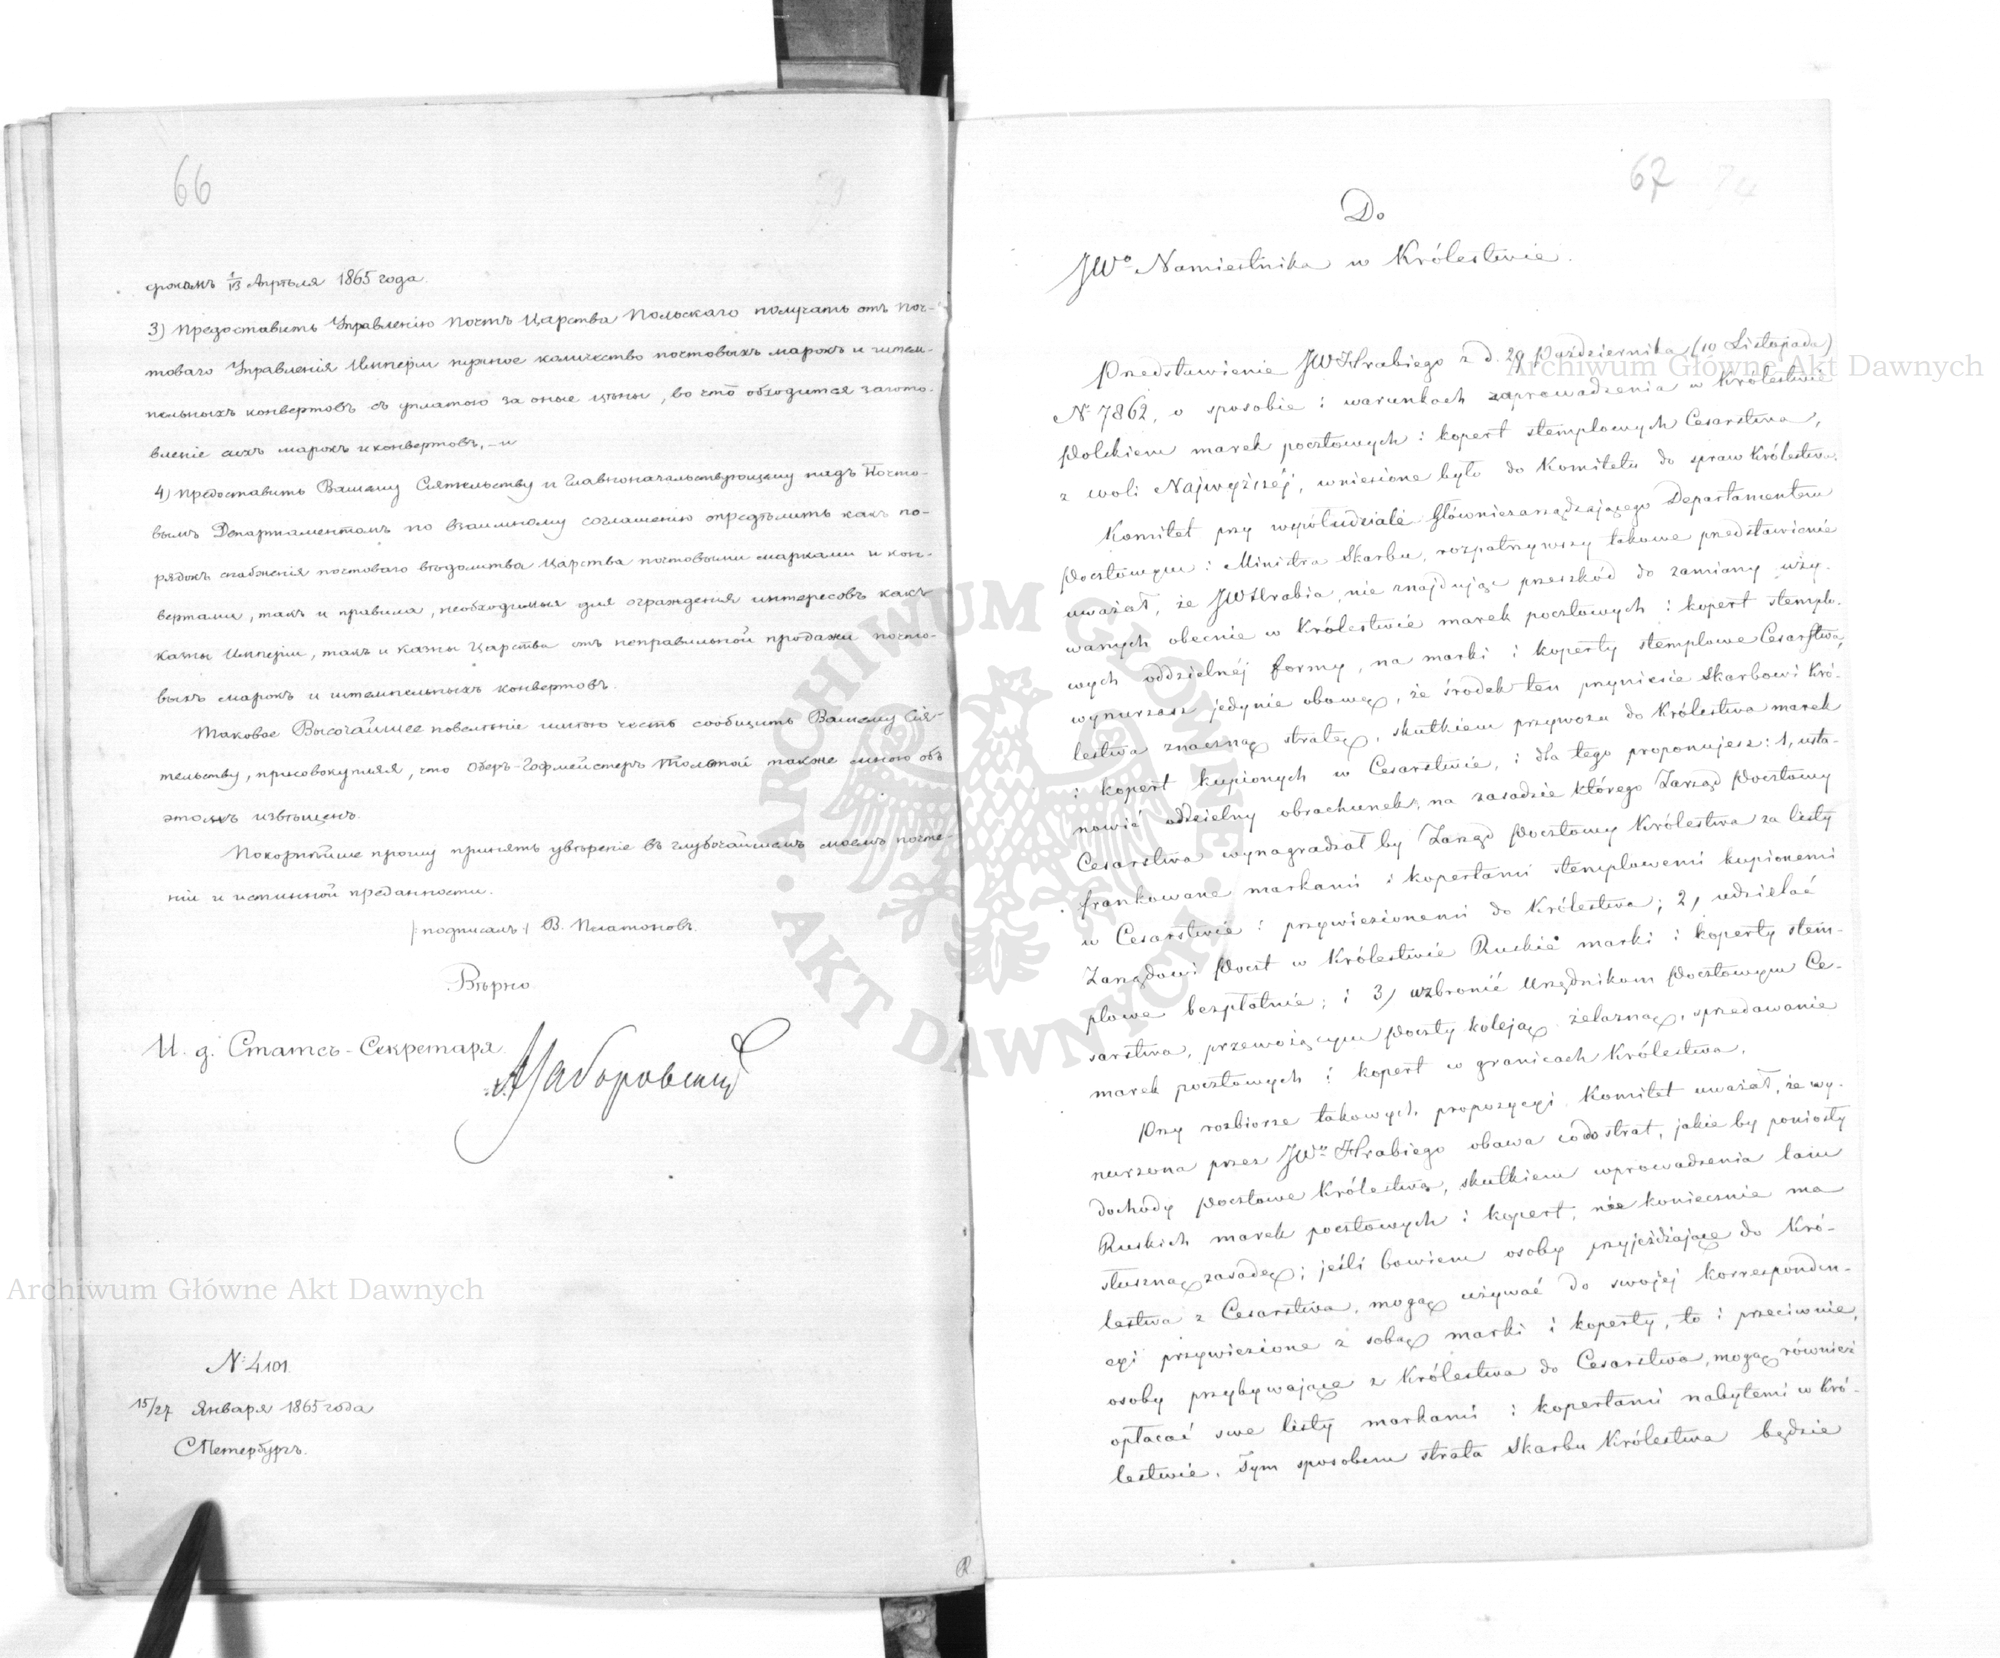 66
срокомъ 1/13 Апрѣля 1865 года.
3) Предоставить Управленію Почтъ Царства Польскаго получать отъ Поч-
товаго Управленія Имперіи нужное количество почтовыхъ марокъ и штем-
пельныхъ конвертовъ съ уплатою за оные цѣны, во что обходится загото-
вленіе сихъ марокъ и конвертовъ, – и
4) Предоставить Вашему Сіятельству и Главноначальствующему надъ Почто-
вымъ Департаментомъ по взаимному соглашенію опредѣлить какъ по-
рядокъ снабженія почтоваго вѣдомства Царства почтовыми марками и кон-
вертами, такъ и правила, необходимыя для огражденія интересовъ какъ
казны Имперіи, такъ и казны Царства отъ неправильной продажи почто-
выхъ марокъ и штемпельныхъ конвертовъ.
Таковое Высочайшее повелѣніе имѣю честь сообщить Вашему Сія-
тельству, присовокупляя, что Оберъ-Гофмейстеръ Толстой также мною объ
этомъ извѣщенъ.
Покорнѣйше прошу принять увѣреніе въ глубочайшемъ моемъ почте-
ніи и истинной преданности.
/подписалъ/ В. Платоновъ.
Вѣрно
И. д. Статсъ-Секретаря
Заборовскій
Archiwum Główne Akt Dawnych
№ 4101.
15/27 Января 1865 года
СПетербургъ.
67 74
Do
JWo Namiestnika w Królestwie.
Przedstawienie JWHrabiego z d. 29 Października (10 Listopada)
Archiwum Główne Akt Dawnych
Nr 7862, o sposobie i warunkach zaprowadzenia w Królestwie
Polskiem marek pocztowych i kopert stemplowych Cesarstwa,
z woli Najwyższéj, wniesione było do Komitetu do spraw Królestwa.
Komitet przy współudziale Główniezarządzającego Departamentem
Pocztowym i Ministra Skarbu, rozpatrzywszy takowe przedstawienie
uważał, że JWHrabia, nie znajdując przeszkód do zamiany uży-
wanych obecnie w Królestwie marek pocztowych i kopert stemplo-
wych oddzielnéj formy, na marki i koperty stemplowe Cesarstwa,
wynurzasz jedynie obawę, że środek ten przyniesie Skarbowi Kró-
lestwa znaczną stratę, skutkiem przywozu do Królestwa marek
i kopert kupionych w Cesarstwie, i dla tego proponujesz: 1, usta-
nowić oddzielny obrachunek, na zasadzie którego Zarząd Pocztowy
Cesarstwa wynagradzał by Zarząd Pocztowy Królestwa za listy
frankowane markami i kopertami stemplowemi kupionemi
w Cesarstwie i przywiezionemi do Królestwa; 2, udzielać
Zarządowi Poczt w Królestwie Ruskie marki i koperty stem-
plowe bezpłatnie; i 3) wzbronić Urzędnikom Pocztowym Ce-
sarstwa, przewożącym Poczty koleją żelazną, sprzedawanie
marek pocztowych i kopert w granicach Królestwa.
Przy rozbiorze takowych propozycyi Komitet uważał, że wy-
nurzona przez JWo Hrabiego obawa co do strat, jakie by poniosły
dochody Pocztowe Królestwa, skutkiem wprowadzenia tam
Ruskich marek pocztowych i kopert, nie koniecznie ma
słuszną zasadę; jeśli bowiem osoby przyjeżdżające do Kró-
lestwa z Cesarstwa, mogą używać do swojéj korresponden-
cyi przywiezione z sobą marki i koperty, to i przeciwnie,
osoby przybywające z Królestwa do Cesarstwa, mogą również
opłacać swe listy markami i kopertami nabytemi w Kró-
lestwie. Tym sposobem strata Skarbu Królestwa będzie
ARCHIWUM GŁÓWNE
AKT DAWNYCH